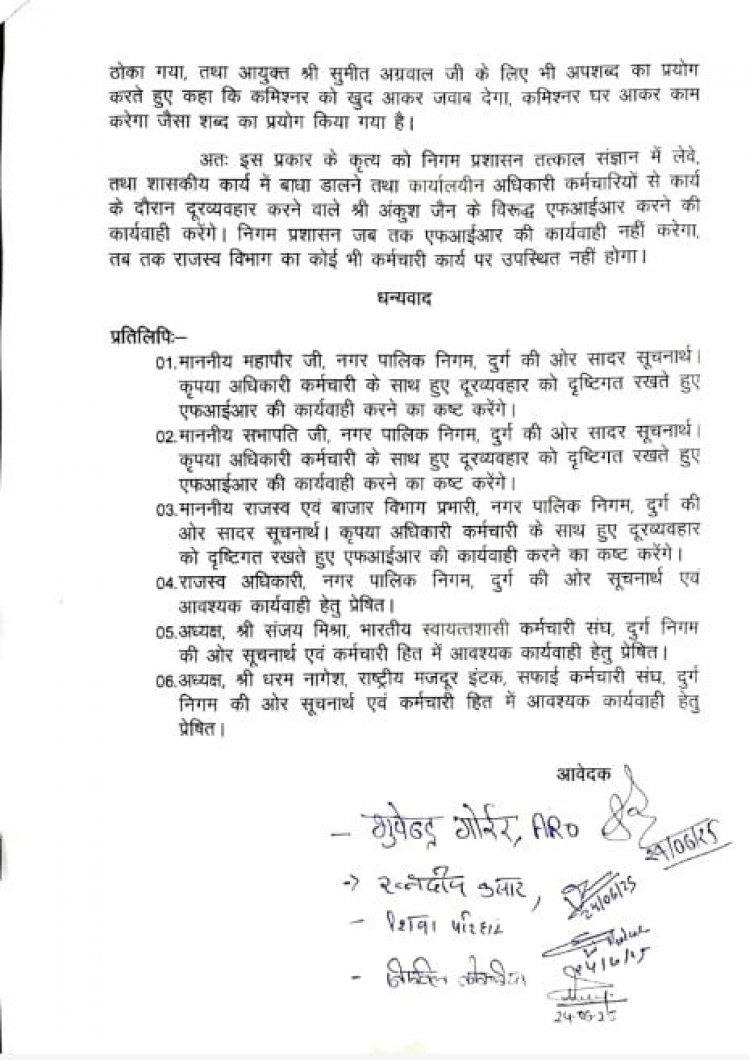 ठोका गया, तथा आयुक्त श्री सुमीत अग्रवाल जी के लिए भी अपशब्द का प्रयोग
करते हुए कहा कि कमिश्नर को खुद आकर जवाब देगा, कमिश्नर घर आकर काम
करेगा जैसा शब्द का प्रयोग किया गया है।
अतः इस प्रकार के कृत्य को निगम प्रशासन तत्काल संज्ञान में लेवे,
तथा शासकीय कार्य में बाधा डालने तथा कार्यालयीन अधिकारी कर्मचारियों से कार्य
के दौरान दूरव्यवहार करने वाले श्री अंकुश जैन के विरूद्ध एफआईआर करने की
कार्यवाही करेंगे। निगम प्रशासन जब तक एफआईआर की कार्यवाही नहीं करेगा,
तब तक राजस्व विभाग का कोई भी कर्मचारी कार्य पर उपस्थित नहीं होगा।
धन्यवाद
प्रतिलिपिः–
01.माननीय महापौर जी, नगर पालिक निगम, दुर्ग की ओर सादर सूचनार्थ।
कृपया अधिकारी कर्मचारी के साथ हुए दूरव्यवहार को दृष्टिगत रखते हुए
एफआईआर की कार्यवाही करने का कष्ट करेंगे।
02.माननीय सभापति जी, नगर पालिक निगम, दुर्ग की ओर सादर सूचनार्थ।
कृपया अधिकारी कर्मचारी के साथ हुए दूरव्यवहार को दृष्टिगत रखते हुए
एफआईआर की कार्यवाही करने का कष्ट करेंगे।
03.माननीय राजस्व एवं बाजार विभाग प्रभारी, नगर पालिक निगम, दुर्ग की
ओर सादर सूचनार्थ। कृपया अधिकारी कर्मचारी के साथ हुए दूरव्यवहार
को दृष्टिगत रखते हुए एफआईआर की कार्यवाही करने का कष्ट करेंगे।
04.राजस्व अधिकारी, नगर पालिक निगम, दुर्ग की ओर सूचनार्थ एवं
आवश्यक कार्यवाही हेतु प्रेषित।
05.अध्यक्ष, श्री संजय मिश्रा, भारतीय स्वायत्तशासी कर्मचारी संघ, दुर्ग निगम
की ओर सूचनार्थ एवं कर्मचारी हित में आवश्यक कार्यवाही हेतु प्रेषित।
06.अध्यक्ष, श्री धरम नागेश, राष्ट्रीय मजदूर इंटक, सफाई कर्मचारी संघ, दुर्ग
निगम की ओर सूचनार्थ एवं कर्मचारी हित में आवश्यक कार्यवाही हेतु
प्रेषित।
आवेदक
– भुपेन्द्र गोईर, ARO
24/06/25
-> रत्नदीप कुमार,
24/06/25
- परिहार
24/6/25
- निखिल
24-06-25